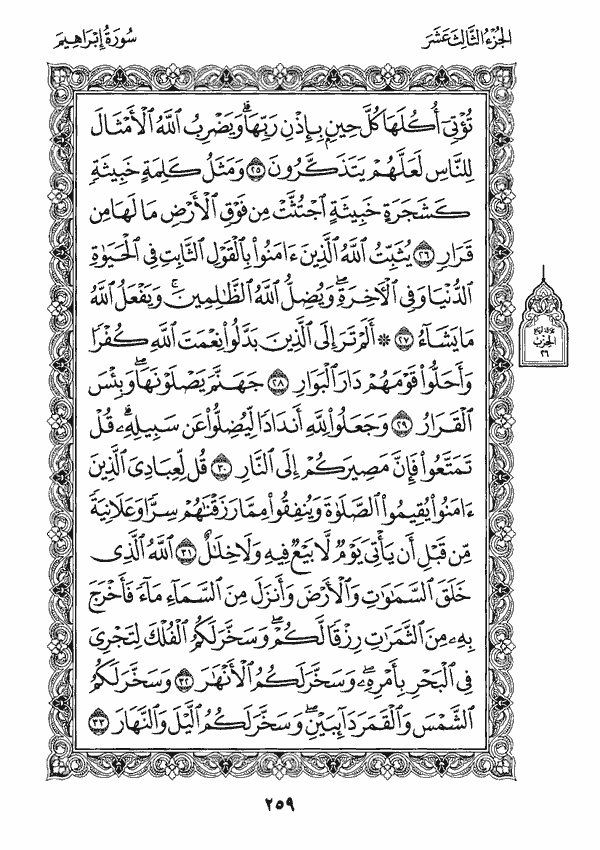 الجُزْءُ الثَّالِثَ عَشَرَ
سُورَةُ إِبْرَاهِيمَ
تُؤْتِىٓ أُكُلَهَا كُلَّ حِينِۭ بِإِذْنِ رَبِّهَاۗ وَيَضْرِبُ ٱللَّهُ ٱلْأَمْثَالَ
لِلنَّاسِ لَعَلَّهُمْ يَتَذَكَّرُونَ ٢٥ وَمَثَلُ كَلِمَةٍ خَبِيثَةٍ
كَشَجَرَةٍ خَبِيثَةٍ ٱجْتُثَّتْ مِن فَوْقِ ٱلْأَرْضِ مَا لَهَا مِن
قَرَارٍ ٢٦ يُثَبِّتُ ٱللَّهُ ٱلَّذِينَ ءَامَنُوا۟ بِٱلْقَوْلِ ٱلثَّابِتِ فِى ٱلْحَيَوٰةِ
ٱلدُّنْيَا وَفِى ٱلْءَاخِرَةِۖ وَيُضِلُّ ٱللَّهُ ٱلظَّٰلِمِينَۚ وَيَفْعَلُ ٱللَّهُ
مَا يَشَآءُ ٢٧ ۞ أَلَمْ تَرَ إِلَى ٱلَّذِينَ بَدَّلُوا۟ نِعْمَتَ ٱللَّهِ كُفْرًا
وَأَحَلُّوا۟ قَوْمَهُمْ دَارَ ٱلْبَوَارِ ٢٨ جَهَنَّمَ يَصْلَوْنَهَاۖ وَبِئْسَ
ٱلْقَرَارُ ٢٩ وَجَعَلُوا۟ لِلَّهِ أَندَادًا لِّيُضِلُّوا۟ عَن سَبِيلِهِۦۗ قُلْ
تَمَتَّعُوا۟ فَإِنَّ مَصِيرَكُمْ إِلَى ٱلنَّارِ ٣٠ قُل لِّعِبَادِىَ ٱلَّذِينَ
ءَامَنُوا۟ يُقِيمُوا۟ ٱلصَّلَوٰةَ وَيُنفِقُوا۟ مِمَّا رَزَقْنَٰهُمْ سِرًّا وَعَلَانِيَةً
مِّن قَبْلِ أَن يَأْتِىَ يَوْمٌ لَّا بَيْعٌ فِيهِ وَلَا خِلَٰلٌ ٣١ ٱللَّهُ ٱلَّذِى
خَلَقَ ٱلسَّمَٰوَٰتِ وَٱلْأَرْضَ وَأَنزَلَ مِنَ ٱلسَّمَآءِ مَآءً فَأَخْرَجَ
بِهِۦ مِنَ ٱلثَّمَرَٰتِ رِزْقًا لَّكُمْۖ وَسَخَّرَ لَكُمُ ٱلْفُلْكَ لِتَجْرِىَ
فِى ٱلْبَحْرِ بِأَمْرِهِۦۖ وَسَخَّرَ لَكُمُ ٱلْأَنْهَٰرَ ٣٢ وَسَخَّرَ لَكُمُ
ٱلشَّمْسَ وَٱلْقَمَرَ دَآئِبَيْنِۖ وَسَخَّرَ لَكُمُ ٱلَّيْلَ وَٱلنَّهَارَ ٣٣
الحزب
٢٦
٢٥٩